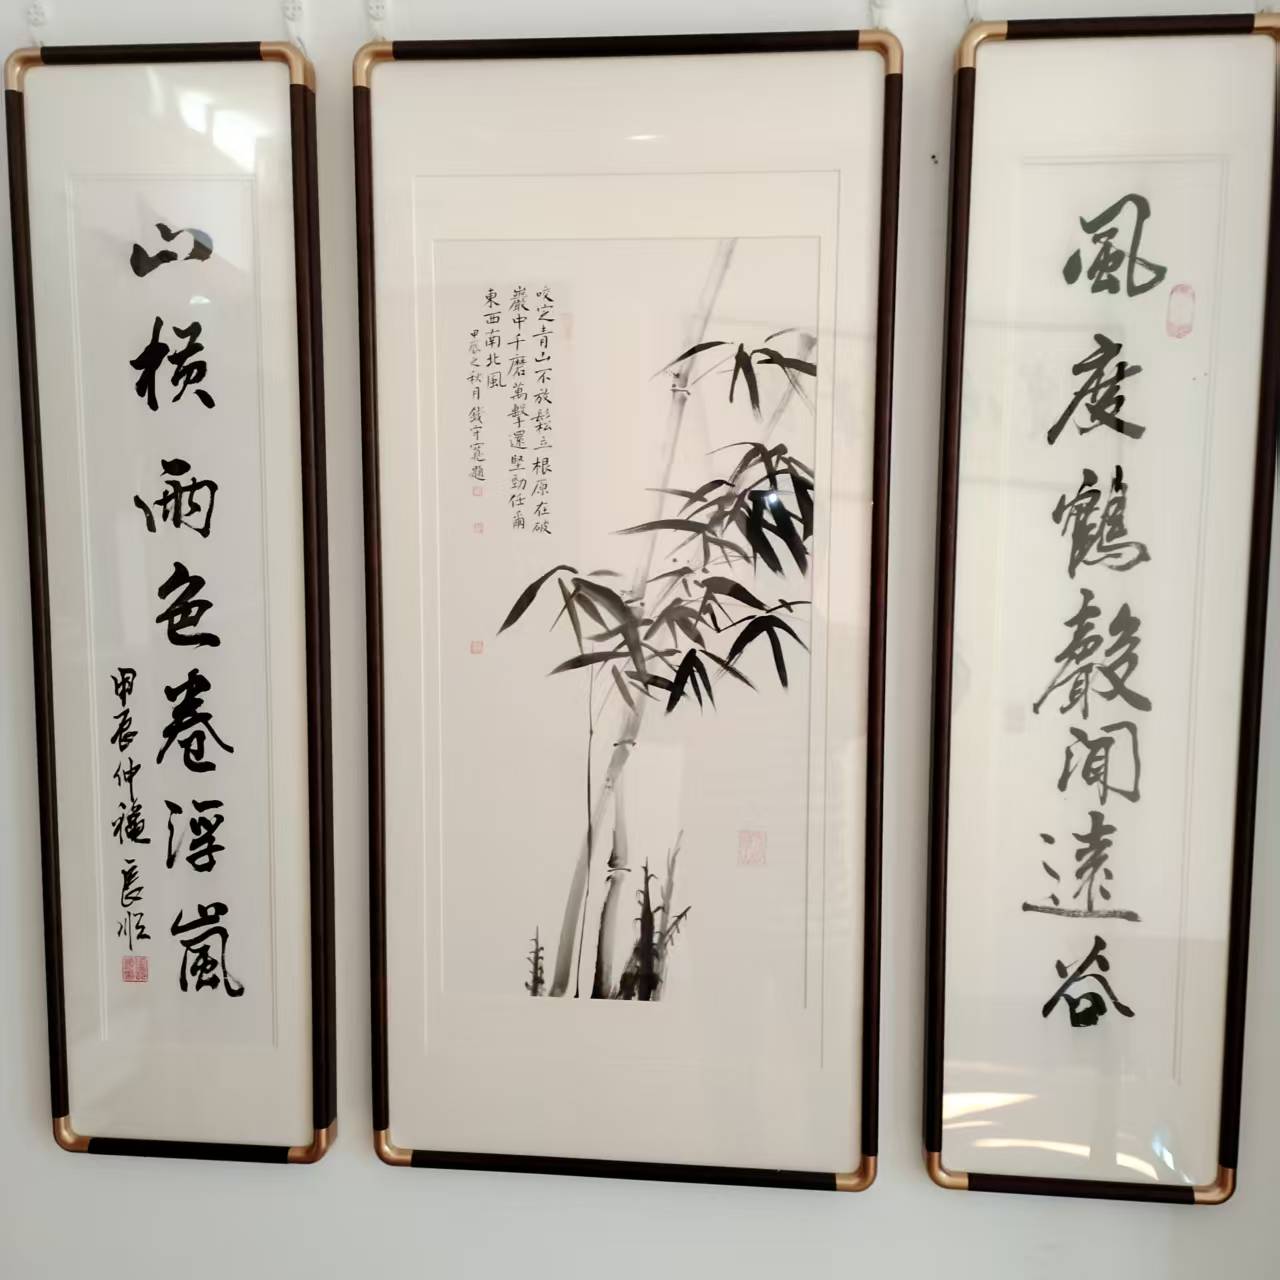 風度鶴聲聞遠谷
咬定青山不放鬆立根原在破
巖中千磨萬擊還堅勁任爾
東西南北風
甲辰之秋月錢守寬題
山橫雨色卷浮嵐
甲辰仲穐長順